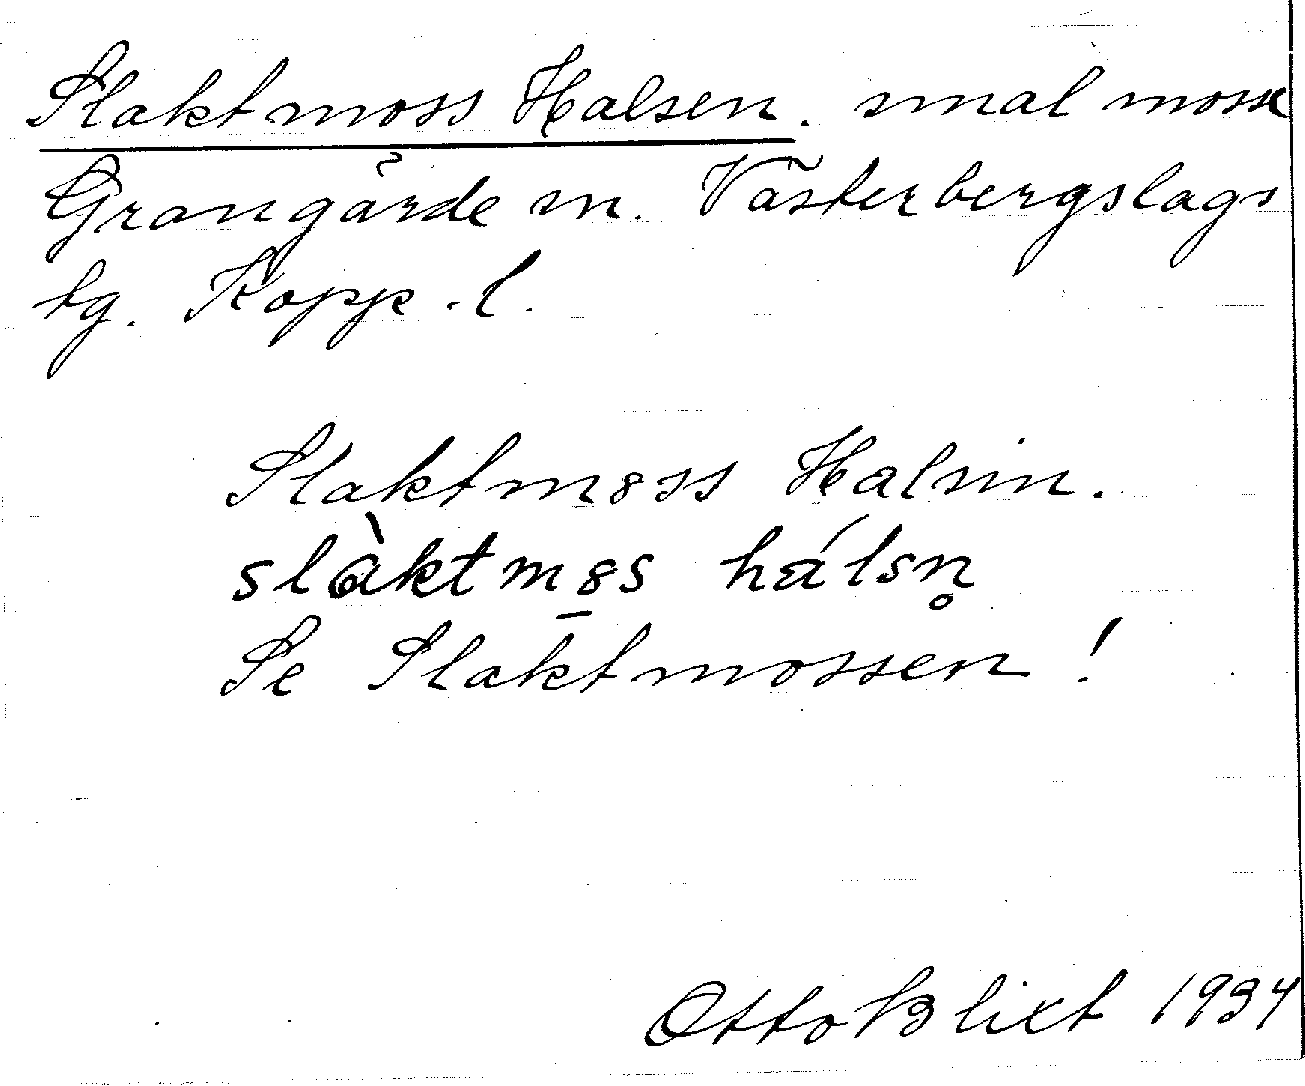 Slaktmoss Halsen. smal mosse
Grangärde sn. Västerbergslags
tg. Kopp. l.
Slaktm8ss Halsin.
slàktm8s hálsn̥
Se Slaktmossen!
Otto Blixt 1934